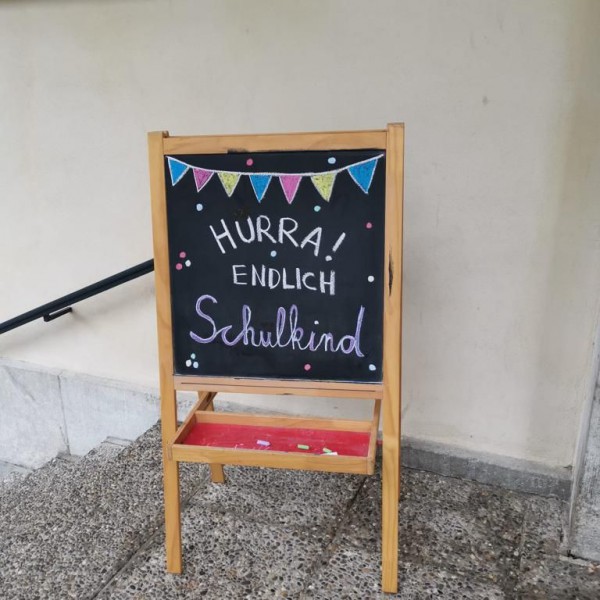 HURRA!
ENDLICH
Schulkind